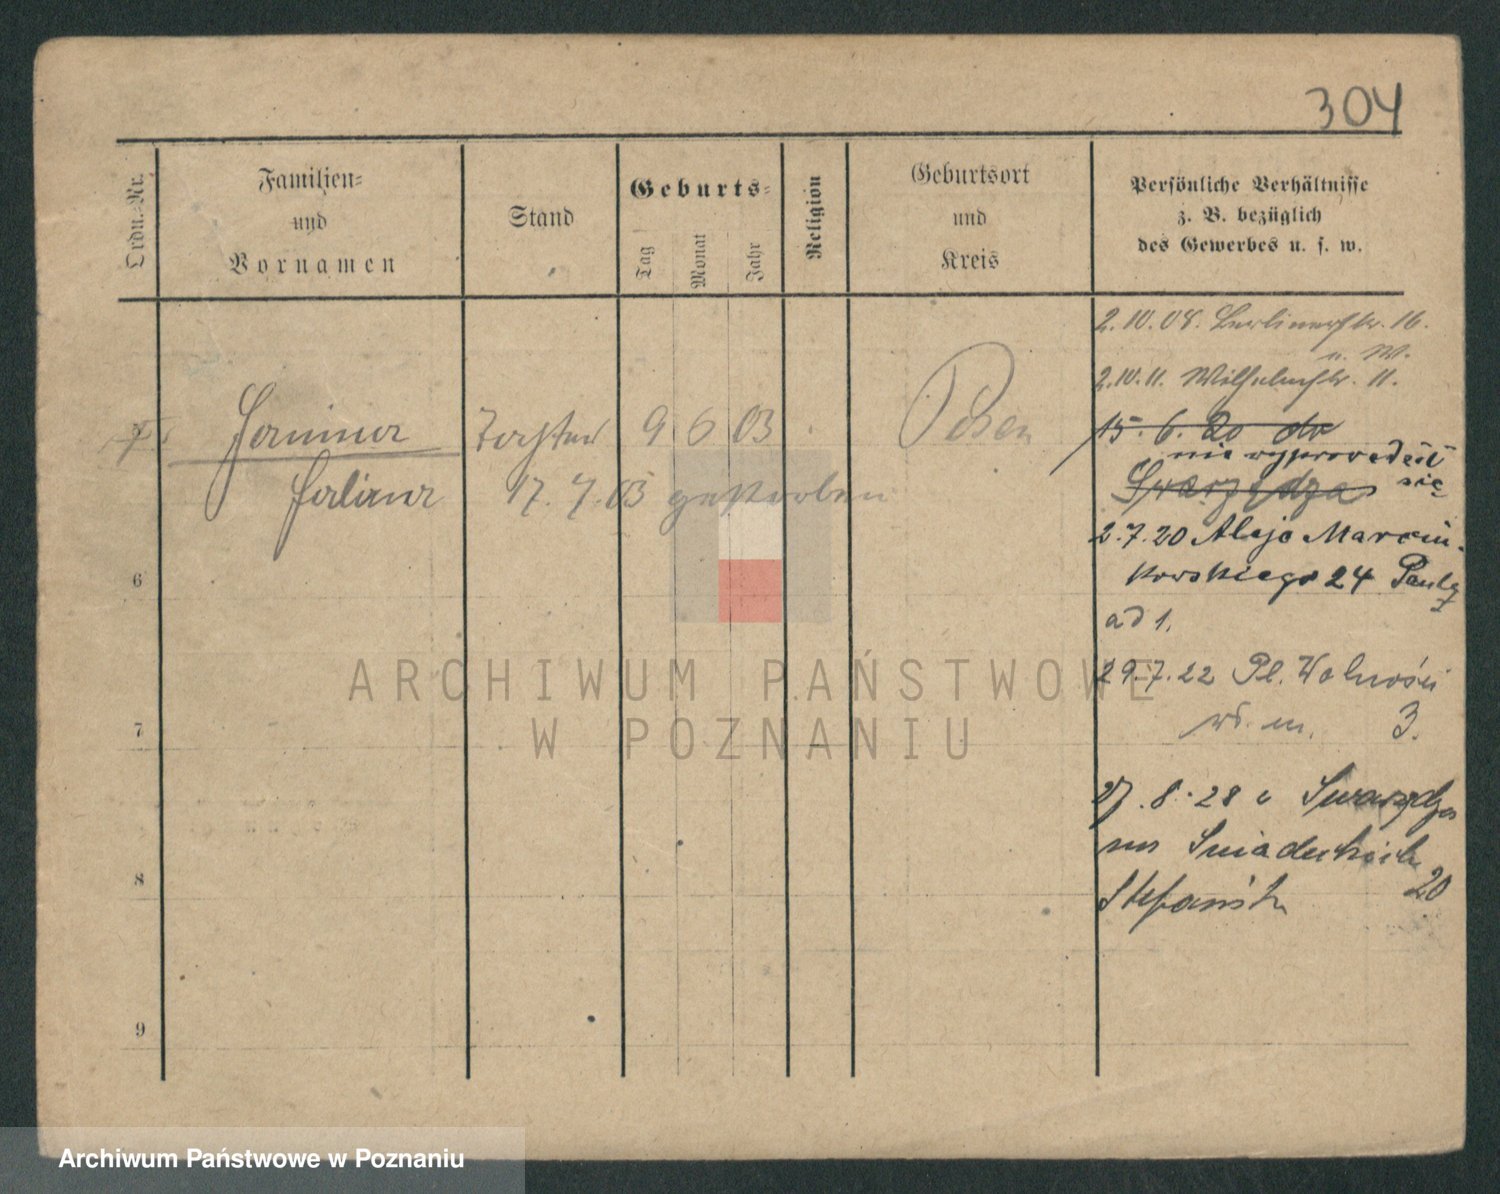 304
Ordn.-Nr.
Familien-
und
Vornamen
Stand
Geburts-
Tag
Monat
Jahr
Religion
Geburtsort
und
Kreis
Persönliche Verhältnisse
z. B. bezüglich
des Gewerbes u. s. w.
2.10.08. Berlinerstr. 16.
u. W.
2.10.11. Wilhelmstr. 11.
Tochter 9 6 03 Posen
15. 6. 20 do
nie wyprowadził
się
Swarzędza
17. 7. 03 gestorben
2.7.20 Aleje Marcin-
kowskiego 24
6
ad 1.
29.7.22 Pl. Wolności
w. m. 3.
7
27.8.28 z Swarzędza
na Śniadeckich
20
8
9
ARCHIWUM PAŃSTWOWE
W POZNANIU
Archiwum Państwowe w Poznaniu